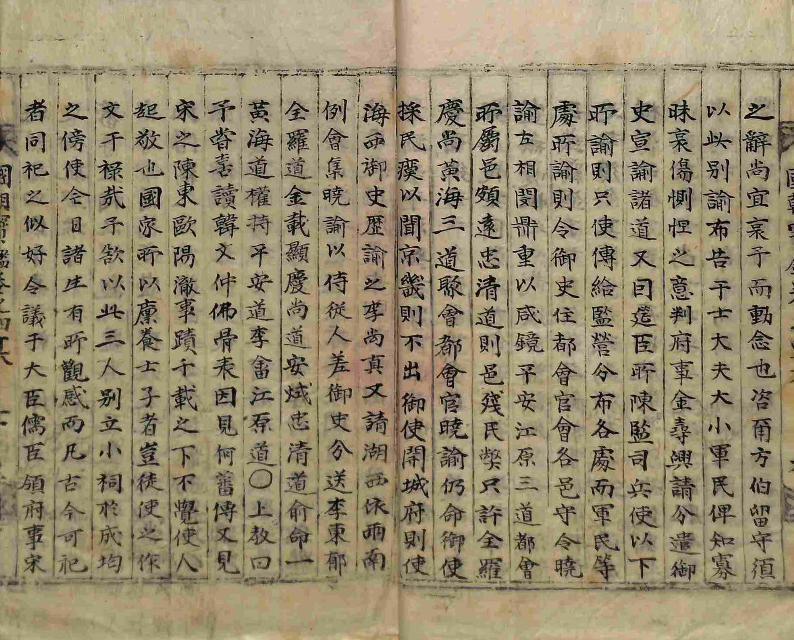 之辭尚宜哀予而動念也咨爾方伯留守須
以此別諭布告于士大夫大小軍民俾知寡
昧哀傷惻怛之意判府事金尋興請分遣御
史宣諭諸道又曰遷臣所陳監司兵使以下
所諭則只使傳給監營分布各處而軍民等
處所諭則令御史往都會官會各邑守令曉
諭左相閔鼎重以咸鏡平安江原三道都會
所屬邑頗遠忠清道則邑殘民弊只許全羅
慶尚黃海三道聚會都會官曉諭仍命御使
採民瘼以聞京畿則不出御使開城府則使
海西御史歷諭之李尚真又請湖西依兩南
例會集曉諭以侍從人差御史分送李東郁
全羅道金載顯慶尚道安烒忠清道俞命一
黃海道權持平安道李畬江原道〇上教曰
予嘗喜讀韓文仲佛骨表因見何蕃傳又見
宋之陳東歐陽澈事蹟千載之下不覺使人
起敬也國家所以廩養士子者豈徒使之作
文干祿哉予欲以此三人別立小祠於成均
之傍使今日諸生有所觀感而凡古今可祀
者同祀之似好令議于大臣儒臣領府事宋